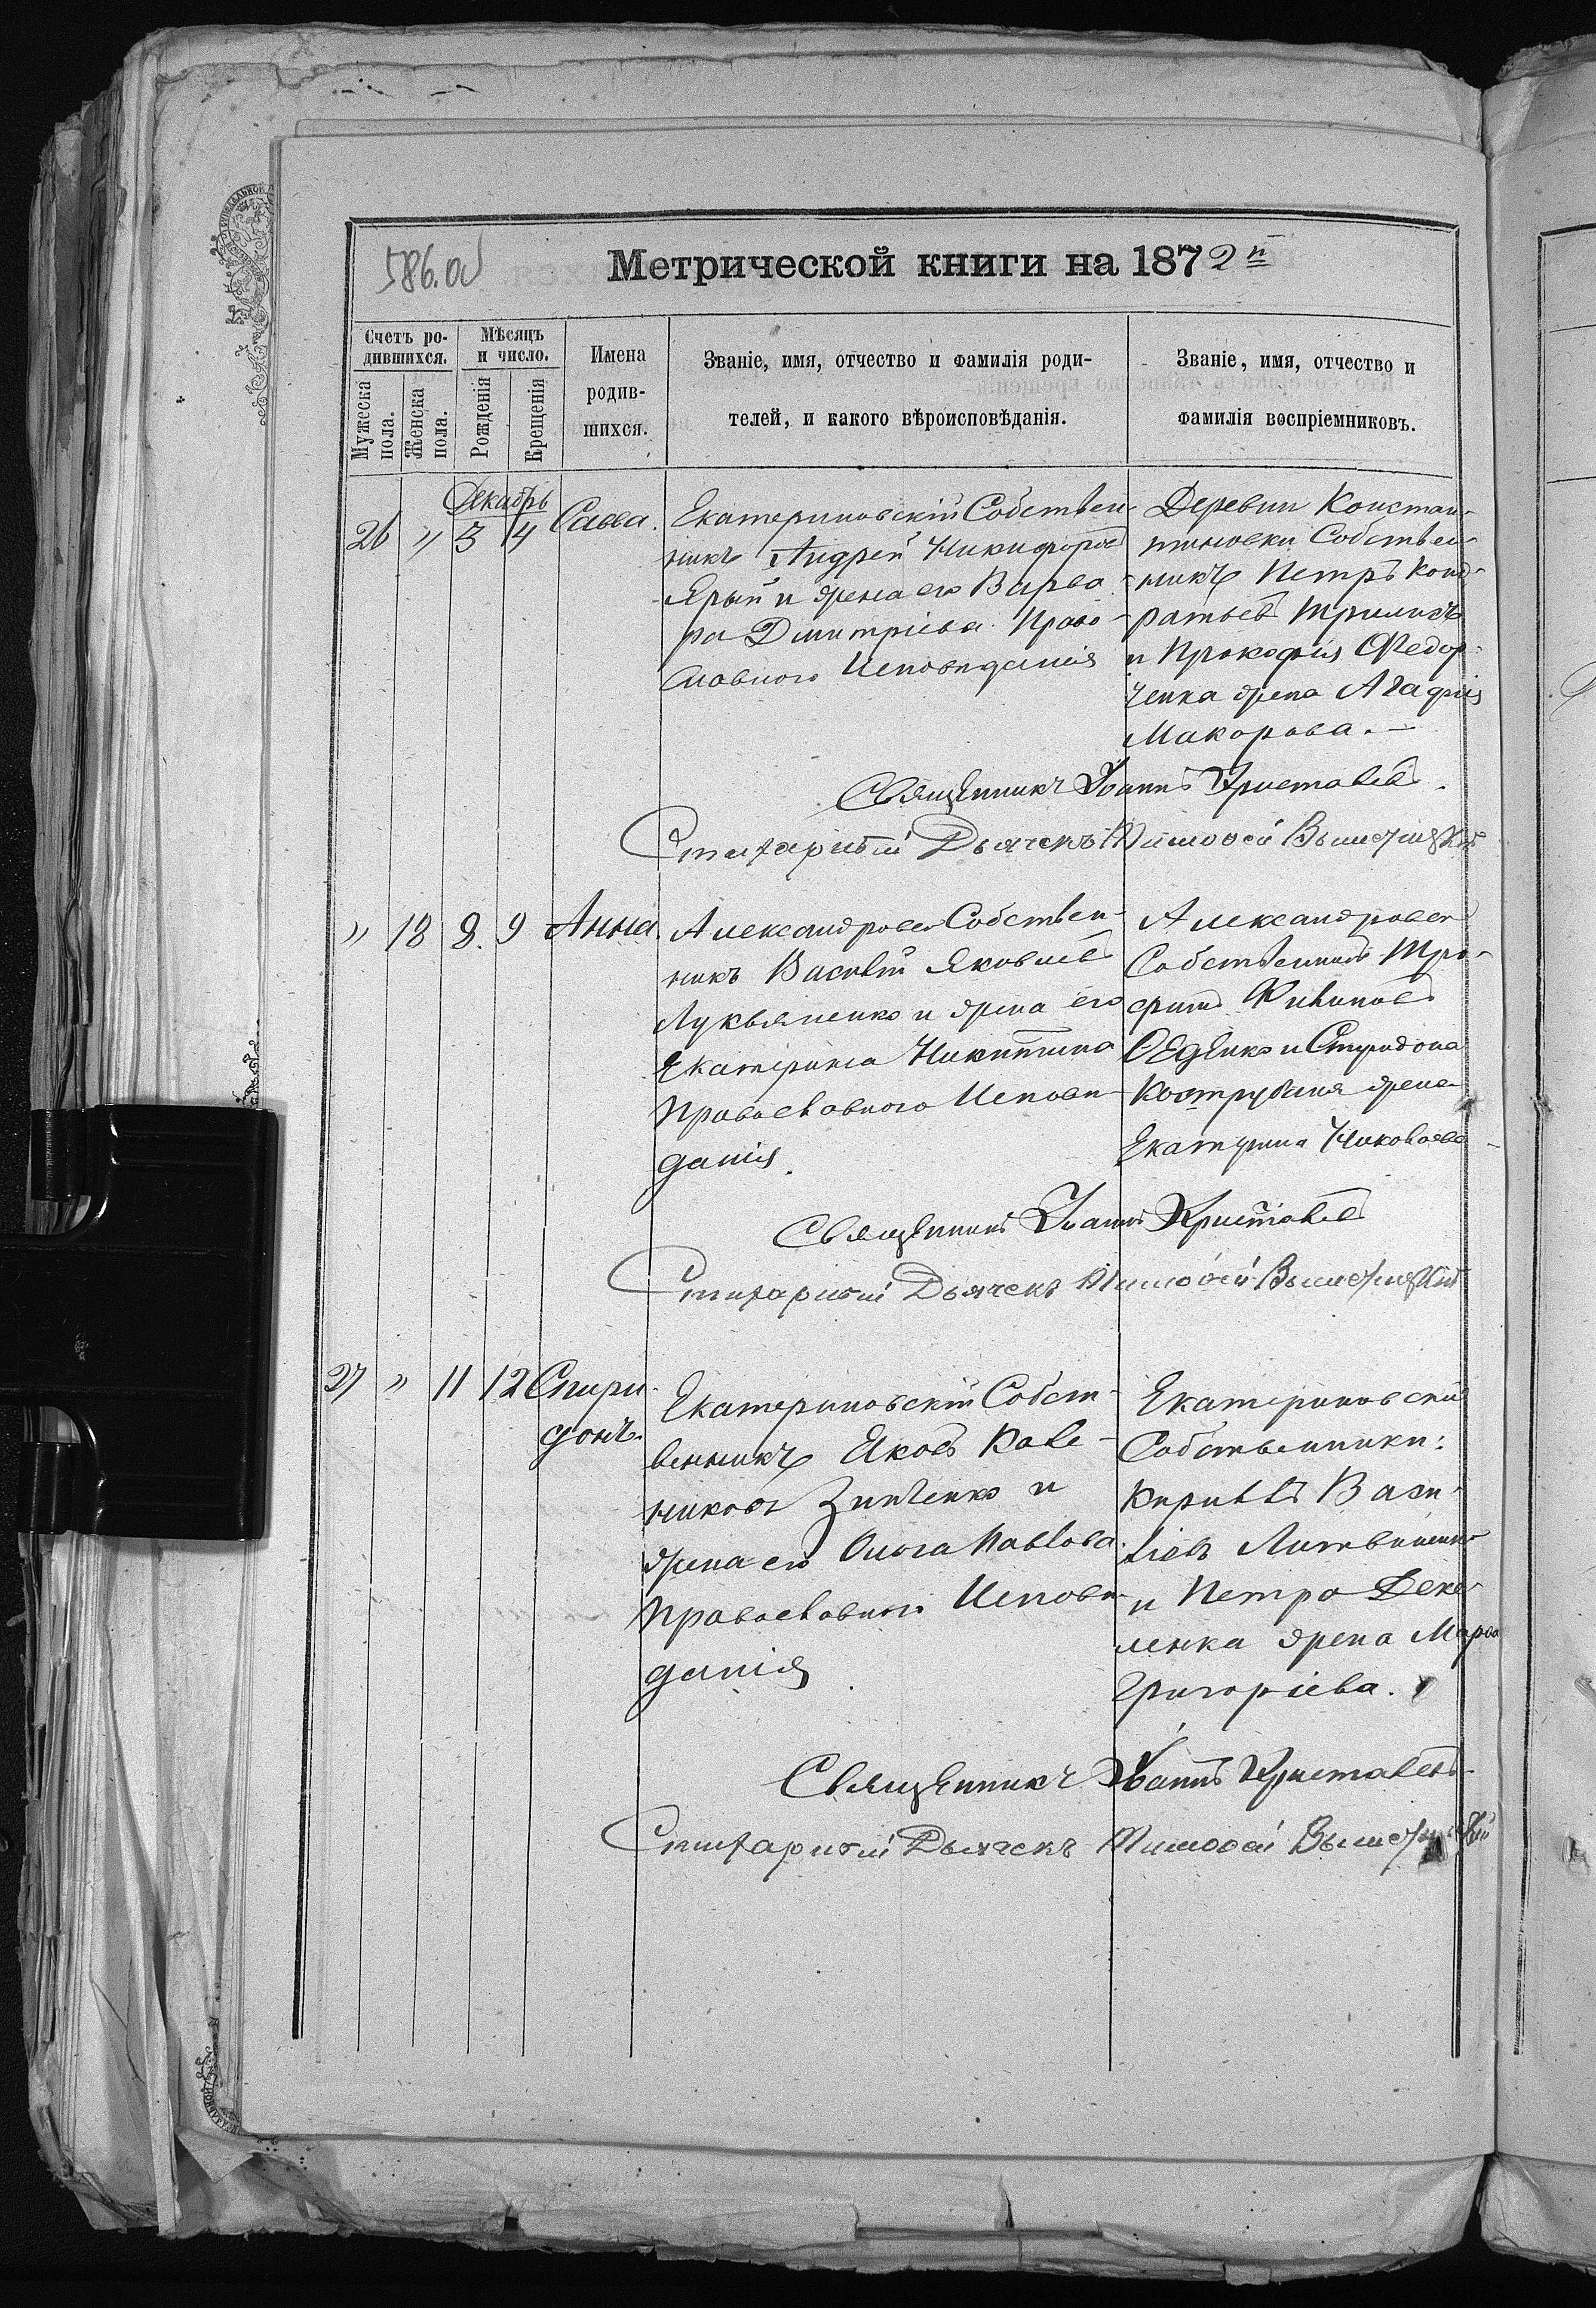 586.об
Метрической книги на 1872й
Счетъ ро-
дившихся.
Мѣсяцъ
и число.
Мужеска
пола.
Женска
пола.
Рожденія
Крещенія
Имена
родив-
шихся.
Званіе, имя, отчество и фамилія роди-
телей, и какого вѣроисповѣданія.
Званіе, имя, отчество и
фамилія воспріемниковъ.
Декабрь
26 " 3 4 Савва.
Екатериновскій Собствен-
никъ Андрей Никифоровъ
Ярый и жена его Варва-
ра Дмитріева Право-
славного Исповиданія
Деревни Констан-
тиновки Собствен-
никъ Петръ Конд-
ратьевъ
и Прокофія Федор-
ченка жена Агафія
Макарова.
Священникъ Іоаннъ
Стихарный Дьячекъ
" 18 8. 9 Анна.
Александровск Собствен-
никъ Василій Яковлевъ
Лукьяненко и жена его
Екатерина Никитина
Православного Испови-
данія.
Александровск
Собственникъ Тро-
фимъ Филиповъ
и Спиридона
жена
Екатерина Николаева
Священникъ Іоаннъ
Стихарный Дьячекъ
27 " 11 12 Спири-
донъ.
Екатериновскій Собст-
венникъ Яковъ Кале-
никовъ Зинченко и
жена его Ольга Павлова
Православного Испови-
данія
Екатериновскіи
Собственники:
Кирилъ Васи-
ліевъ Литвиненко
и Петра
жена Марѳа
Григоріева.
Священникъ Іоаннъ
Стихарный Дьячекъ